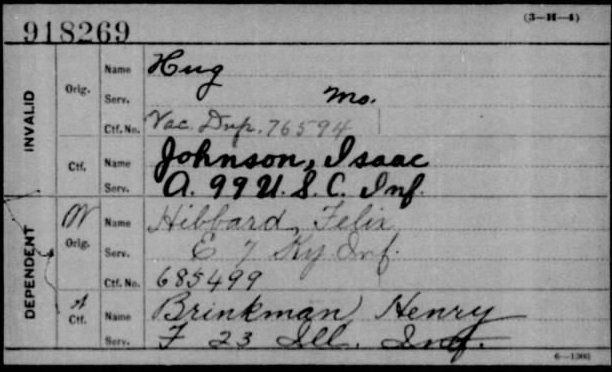 (3—H—4)
918269
INVALID
Orig.
Name Hug
Serv. Mo.
Ctf. No. Vac. Dup. 76594
Ctf.
Name Johnson, Isaac
Serv. A. 99 U. S. C. Inf.
DEPENDENT
W
Orig.
Name Hibbard, Felix
Serv. E 7 Ky Inf.
Ctf. No. 685499
A
Ctf.
Name Brinkman Henry
Serv. F 23 Ill. Inf.